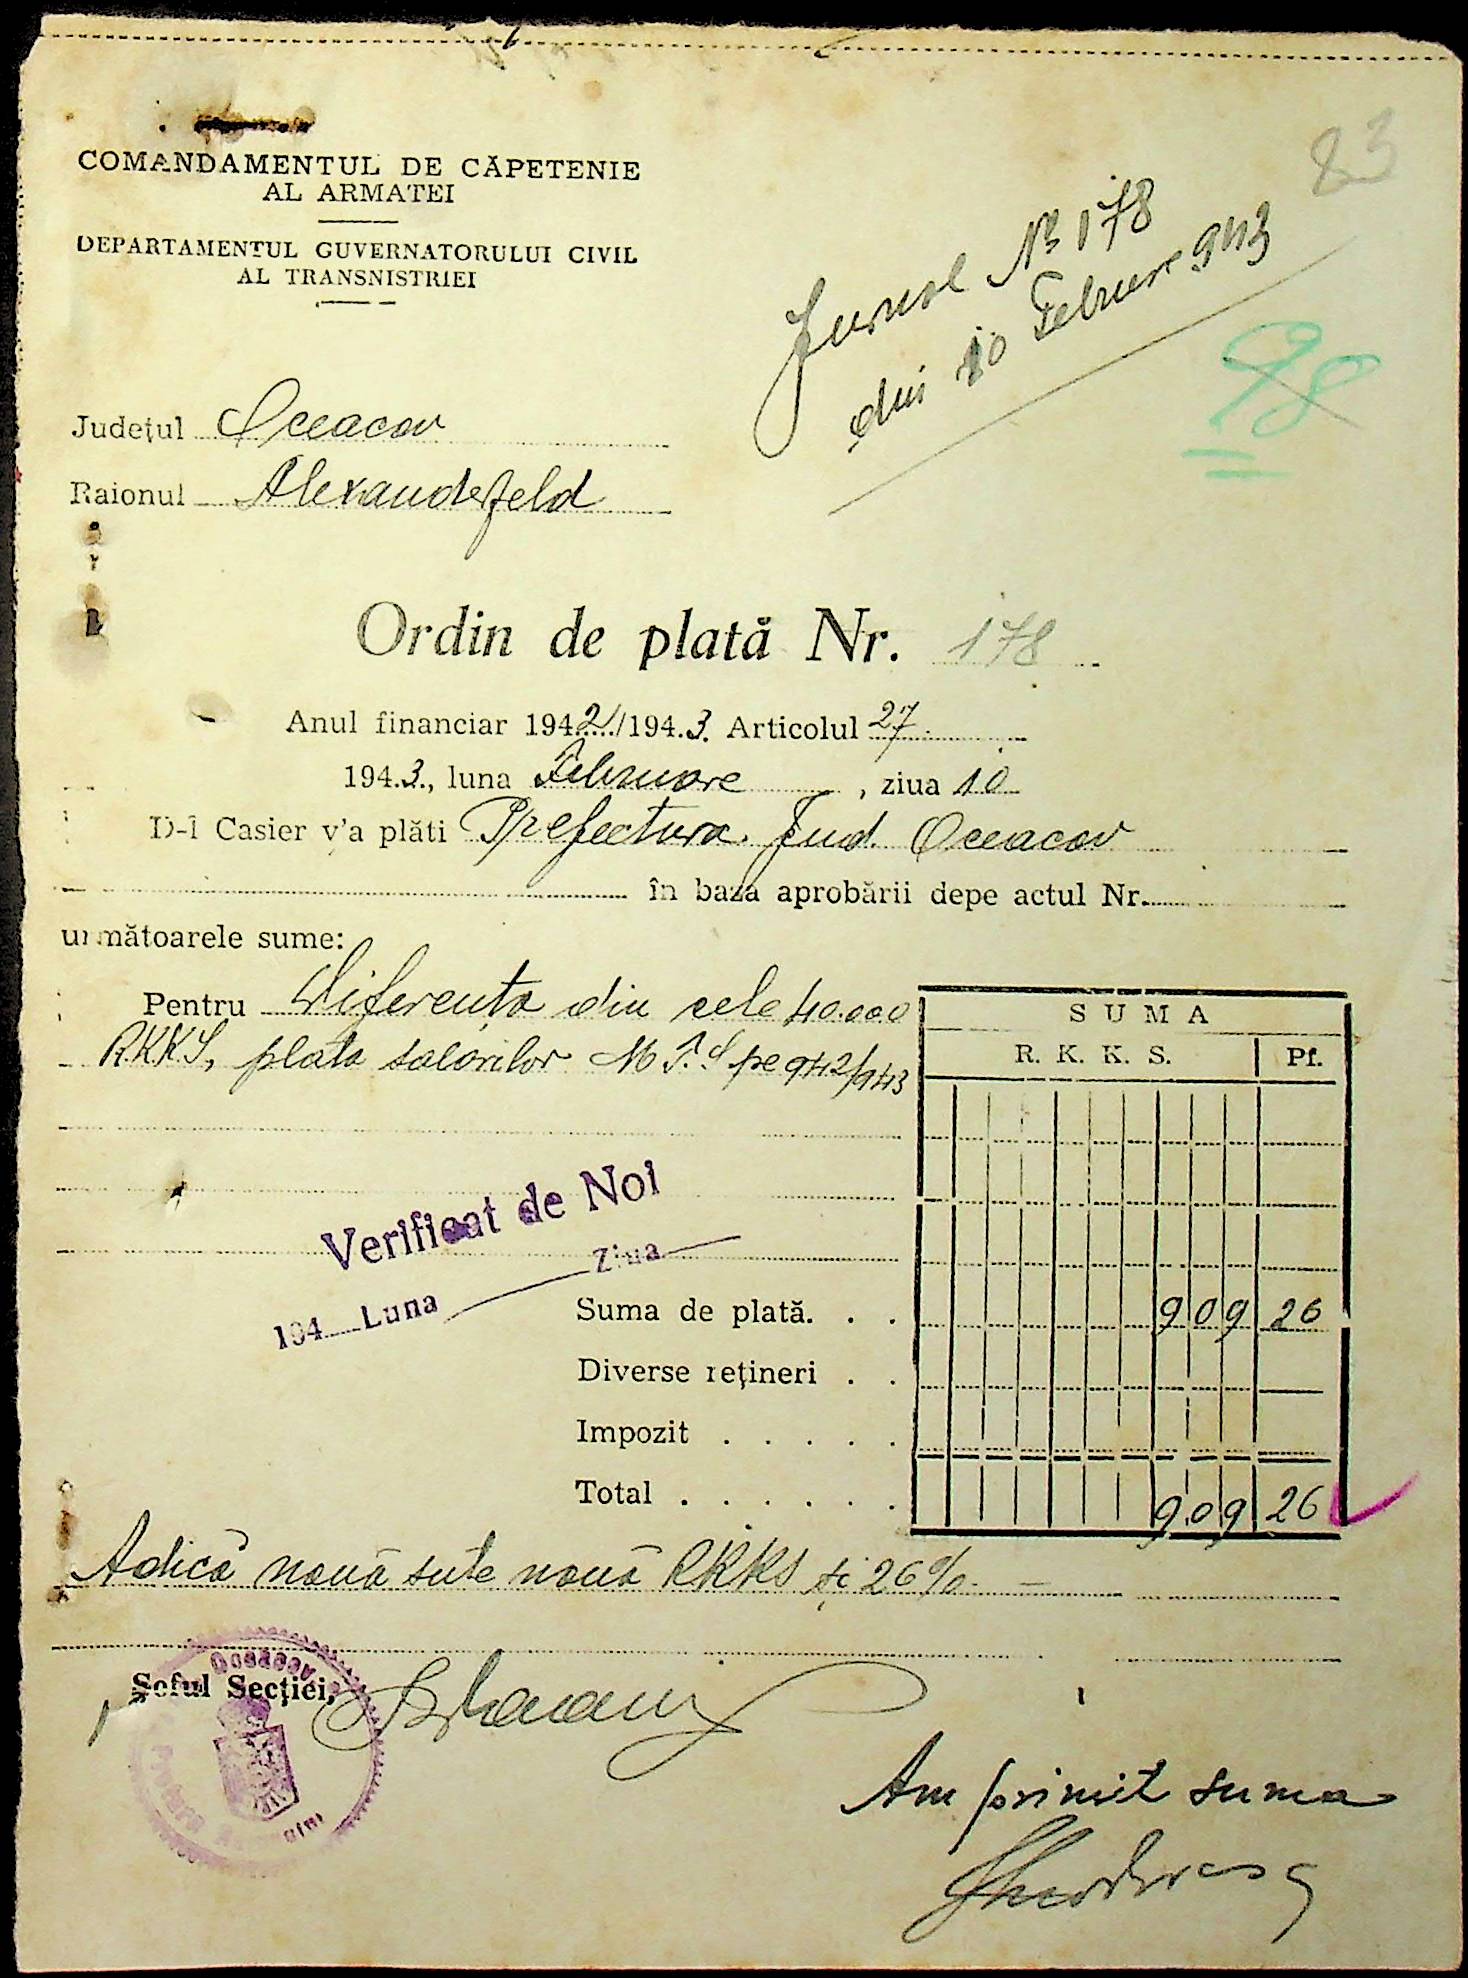 83
COMANDAMENTUL DE CĂPETENIE
AL ARMATEI
DEPARTAMENTUL GUVERNATORULUI CIVIL
AL TRANSNISTRIEI
Jurnal No 178
din 10 Februarie 943
98
Județul Oceacov
Raionul Alexanderfeld
Ordin de plată Nr. 178
Anul financiar 1942/1943. Articolul 27
1943., luna Februare, ziua 10
D-l Casier v'a plăti Prefectura Jud. Oceacov
în baza aprobării depe actul Nr.
următoarele sume:
Pentru Diferența din cele 40.000
RKKS, plata salariilor M.T.S pe 942/943
SUMA
R. K. K. S. Pf.
Verificat de Noi
194 Luna Ziua
Suma de plată. . . 909 26
Diverse rețineri . .
Impozit . . . . .
Total . . . . . . 909 26
Adică nouă sute nouă RKKS și 26%
Șeful Secției,
Am primit suma